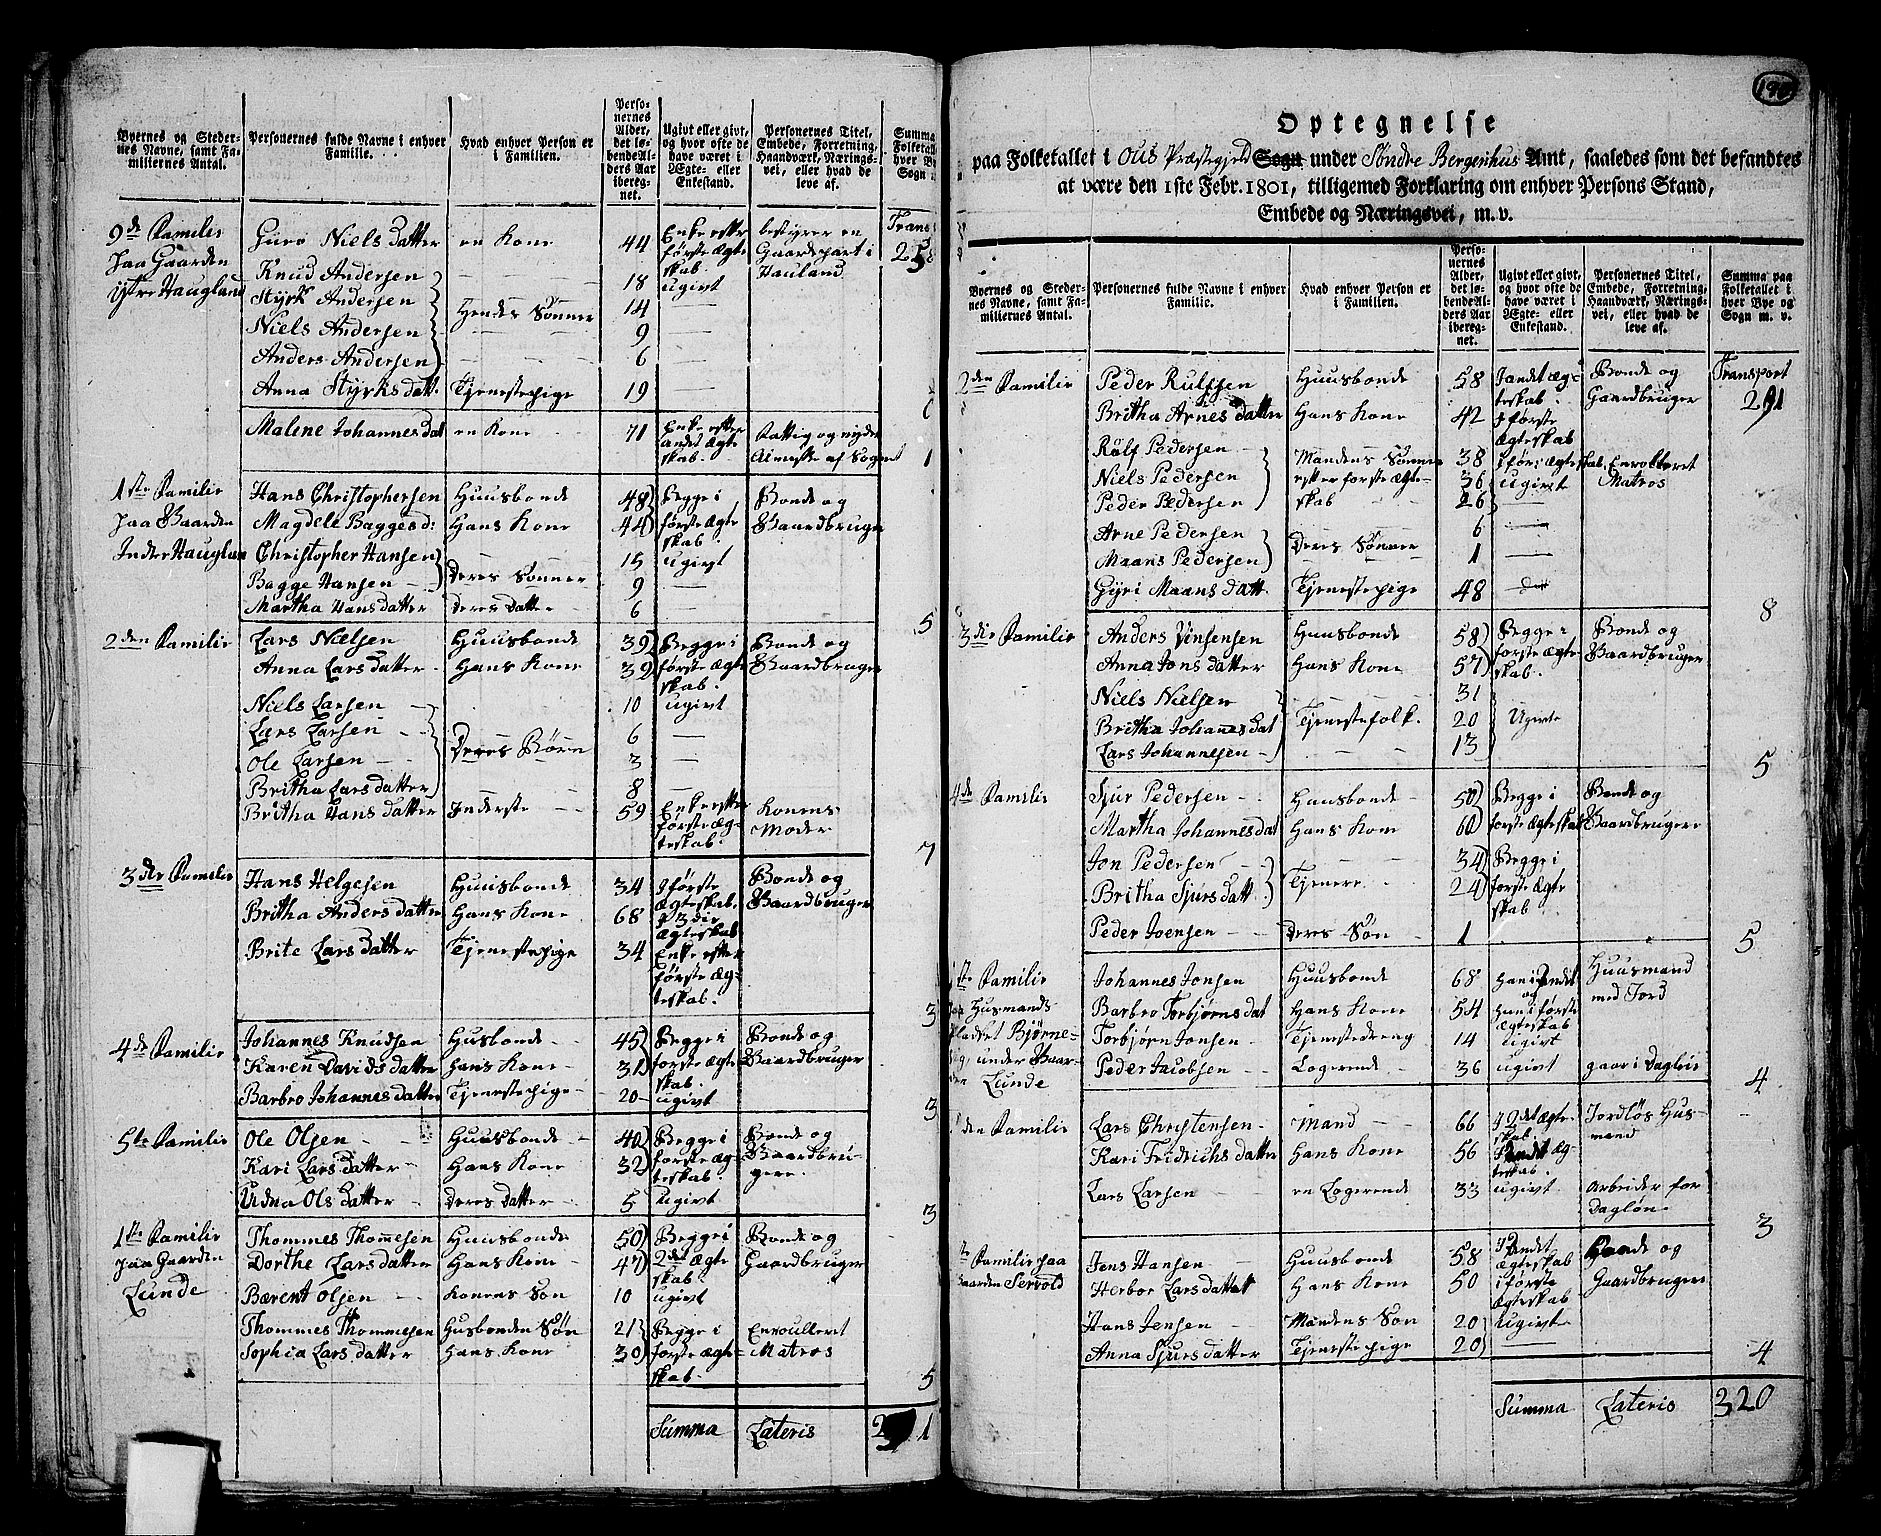 Byernes og Steder-
nes Navne, samt Fa-
miliernes Antal.
Personernes fulde Navne i enhver
Familie.
Hvad enhver Person er
i Familien.
Perso-
nernes
Alder,
det lø-
bende Al-
ders Aar
ibereg-
net.
Ugivt eller givt,
og hvor ofte de
have været i
Ægte- eller
Enkestand.
Personernes Titel,
Embede, Forretning,
Haandværk, Nærings-
vei, eller hvad de
leve af.
Summa
Folketal
hver By
Sogn
9de Familie
paa Gaarden
Ytre Haugland
Guro Niels datter en Kone 44 Enke efter første Ægteskab. bestyrer en Gaardepart i Hauland
Knud Andersen 18 ugivt
Styrk Andersen Hendes Sønner 14 —
Niels Andersen 9 —
Anders Andersen 6 —
Anna Styrks datt. Tjenestepige 19 —
Malene Johannes dat en Kone 71 Enke efter andet Ægteskab. Fattig og nyder Almisse af Sognet 1
1ste Familie
paa Gaarden
Indre Hauglan
Hans Christophersen Huusbonde 48 Begge i første Ægteskab Bonde og Gaardbruger
Magdele Bagges d: Hans Kone 44
Christopher Hansen Deres Sønner 15 ugivt
Bagge Hansen 9 —
Martha Hans datter Deres datter 6 — 5
2den Familie
Lars Nielsen Huusbonde 39 Begge i første Ægteskab. Bonde og Gaardbruger
Anna Lars datter Hans Kone 39
Niels Larsen Deres Børn 10 ugivt
Lars Larsen 6 —
Ole Larsen 3 —
Britha Lars datter 8 —
Britha Hans datter Inderste 59 Enke efter første Ægteskab. Konens Moder 7
3die Familie
Hans Helgesen Huusbonde 34 I første Ægteskab. Bonde og Gaardbruger
Britha Anders datter Hans Kone 68 I 3die Ægteskab
Brite Lars datter Tjenestepige 34 Enke efter første Ægteskab. 3
4de Familie
Johannes Knudsen Husbonde 45 Begge i første Ægteskab. Bonde og Gaardbruger
Karen Davids datter Hans Kone 31
Barbro Johannes datter Tjenestepige 20 ugivt 3
5te Familie
Ole Olsen Huusbonde 40 Begge i første Ægteskab. Bonde og Gaardbrugere
Kari Lars datter Hans Kone 32
Udna Ols datter Deres datter 5 ugivt 3
1ste Familie
paa Gaarden
Lunde
Thommes Thommesen Huusbonde 50 Begge i 2det Ægteskab Bonde og Gaardbruger
Dorthe Lars datter Hans Kone 47
Bærent Olsen Konens Søn 10 ugivt
Thommes Thommesen Husbonden Søn 21 Begge i første Ægteskab Enroulleret Matros
Sophia Lars datter Hans Kone 30 5
Summa Lateris
Optegnelse
paa Folketallet i Ous Præstegield Sogn under Søndre Bergenhus Amt, saaledes som det befandtes
at være den 1ste Febr. 1801, tilligemed Forklaring om enhver Persons Stand,
Embede og Næringsvei, m. v.
Byernes og Steder-
nes Navne, samt Fa-
miliernes Antal.
Personernes fulde Navne i enhver
Familie.
Hvad enhver Person er
i Familien.
Perso-
nernes
Alder,
det lø-
bende Al-
ders Aar
ibereg-
net.
Ugivt eller givt,
og hvor ofte de
have været i
Ægte- eller
Enkestand.
Personernes Titel,
Embede, Forretning,
Haandværk, Nærings-
vei, eller hvad de
leve af.
Summa paa
Folketallet i
hver Bye og
Sogn m. v.
Transport
291
2den Familie
Peder Rulfsen Huusbonde 58 I andet Ægteskab. Bonde og Gaardbruger
Britha Arnes datter Hans Kone 42 I første Ægteskab
Rulf Pedersen Mandens Sønner efter første Ægteskab 38 Enrolleret Matros
Niels Pedersen 36 ugivt
Peder Pedersen 26
Arne Pedersen Deres Sønner 6 —
Maans Pedersen 1 —
Gyri Maans datt. Tjenestepige 48 8
3die Familie
Anders Vinsensen Huusbonde 58 Begge i første Ægteskab. Bonde og Gaardbruger
Anna Jons datter Hans Kone 57
Niels Nielsen Tjenestefolk. 31 Ugivte
Britha Johannes dat 20
Lars Johannesen 13 5
4de Familie
Sjur Pedersen Huusbonde 50 Begge i første Ægteskab Bonde og Gaardbrugere
Martha Johannes dat Hans Kone 60
Jon Pedersen Tjenere 34 Begge i første Ægteskab
Britha Sjurs datt 24
Peder Joensen Deres Søn 1 5
1ste Familie
paa Husmands
Pladset Bjørne-
under Gaar-
den Lunde
Johannes Jonsen Huusbonde 68 Han i Andet og Huusmand med Jord
Barbro Torbjørns dat Hans Kone 54 hun i første Ægteskab
Torbjørn Jonsen Tjenestedreng 14 ugivt
Peder Jacobsen Logerende 36 ugivt gaar i Dagleie 4
2den Familie
Lars Christensen Mand 66 I 2det Ægteskab Jordløs Husmand
Kari Fridrichs datter Hans Kone 56 I andet Ægteskab.
Lars Larsen en Logerende 33 ugivt. Arbeider for Dagløn 3
1ste Familie paa
Gaarden Servold
Jens Hansen Huusbonde 58 I 2andet Ægteskab Bonde og Gaardbruger
Herbor Lars datter Hans Kone 50 i første Ægteskab
Hans Jensen Mandens Søn 20 Ugivte
Anna Sjurs datter Tjenestepige 20 4
Summa Lateris 320